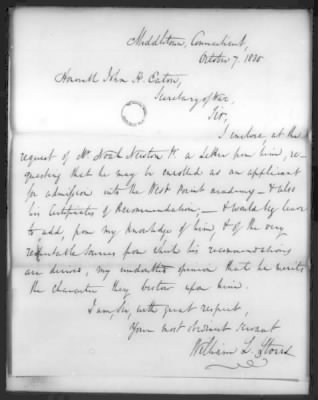 Middletown, Connecticut,
October 7. 1830.
Honorable John H. Eaton,
Secretary of War,
Sir,
I enclose at the
request of Mr Noah Newton Jr. a letter from him, re-
questing that he may be enrolled as an applicant
for admission into the West Point academy - & also
his Certificates of Recommendation; - & would beg leave
to add, from my knowledge of him, & of the very
respectable sources from which his recommendations
are derived, my undoubted opinion that he merits
the character they bestow upon him.
I am, Sir, with great respect,
Your most obedient servant
William L. Storrs